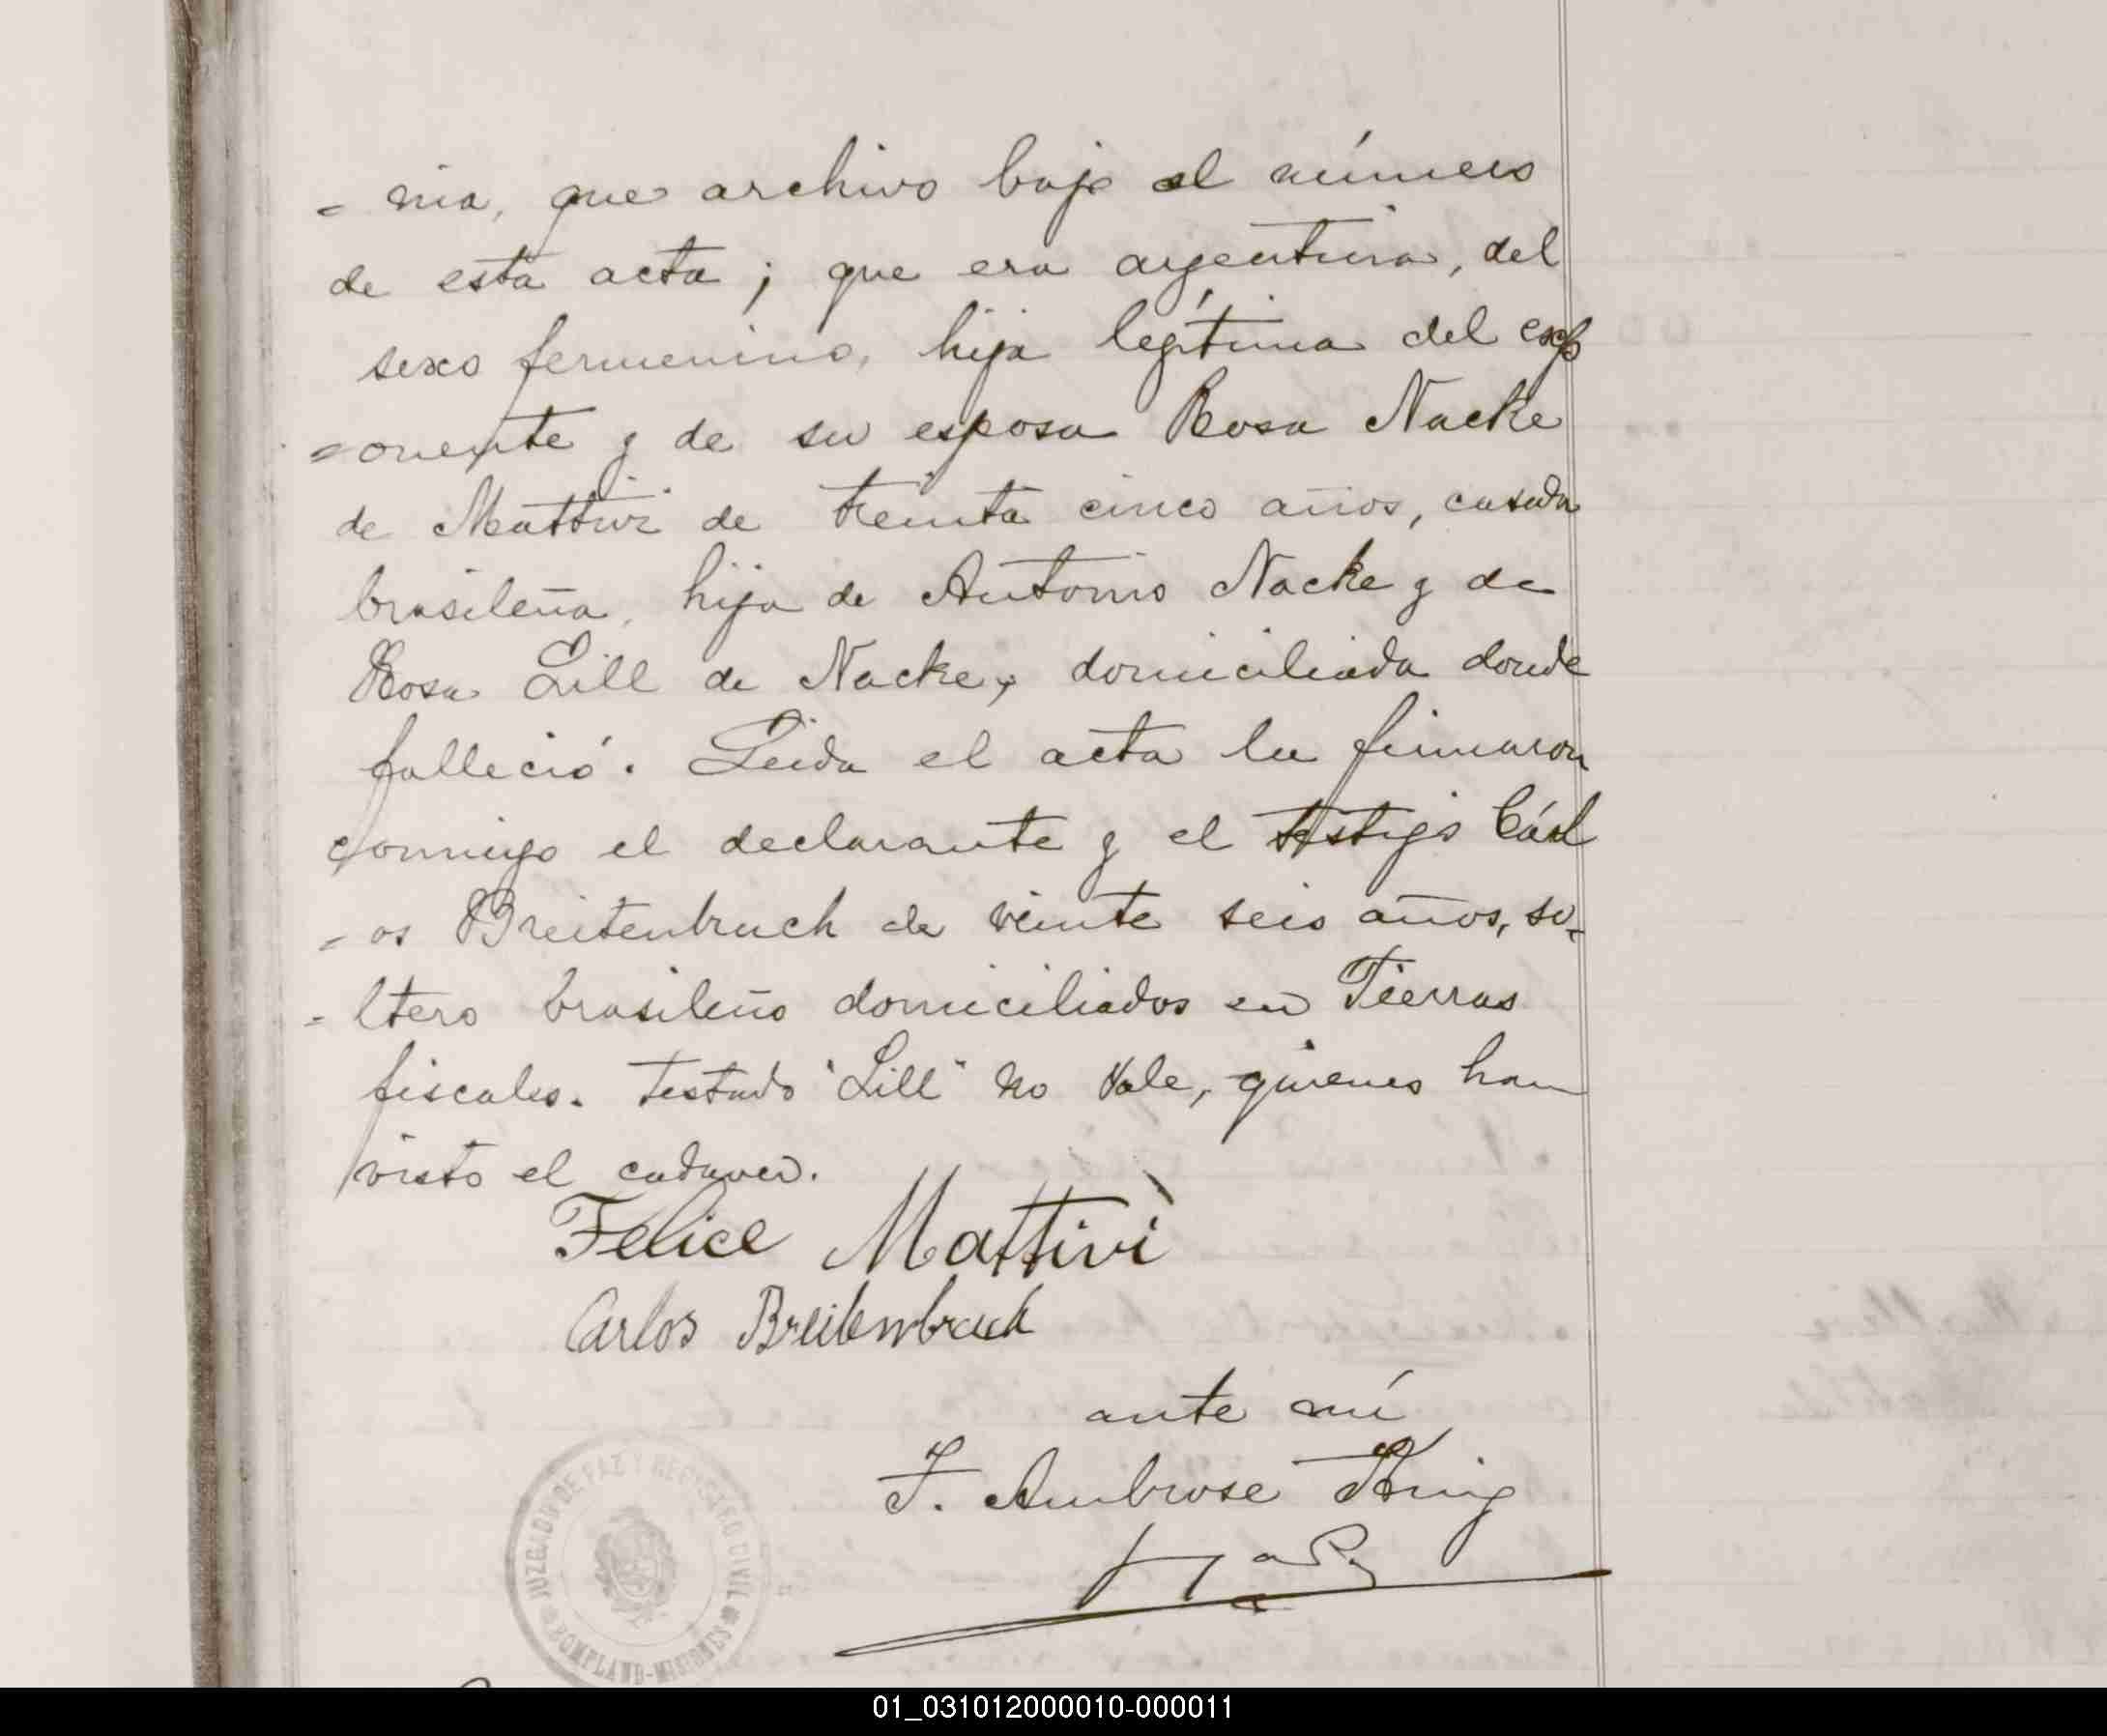 - nia, que archivo bajo el número
de esta acta; que era argentina, del
sexo fermenino, hija legítima del exp
=onente y de su esposa Rosa Nacke
de Mattivi de treinta cinco años, casada
brasileña, hija de Antonio Nacke y de
Rosa Lill de Nacke, domiciliada donde
falleció. Leida el acta la firmaron
conmigo el declarante y el testigo Cárl
- os Breitenbruch de veinte seis años, so-
- ltero brasileño domiciliados en Tierras
fiscales. Testado "Lill" no vale, quienes han
visto el cadaver.
Felice Mattivi
Carlos Breitenbruch
ante mí
J. Ambrose King
JUZGADO DE PAZ Y REGISTRO CIVIL
BOMPLAND-MISIONES
01_031012000010-000011